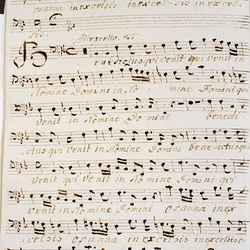 osanna in excelsis in excel - sis in excelsis
Allegretto
Benedictus qui venit qui venit in
Nomine Domini in No - mine Domini qui
venit in Nomine Do mine benedi
ctus qui venit in Nomine Domini benedictus qui
venit qui venit in Nomine Domini qui
venit in No mine Domini osanna in ex
celsis osanna in excelsis in excelsis